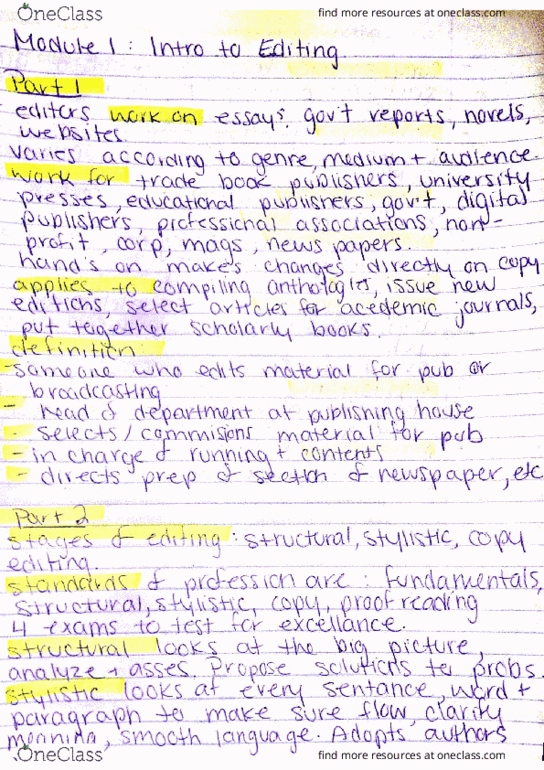 OneClass
find more resources at oneclass.com
Module 1: Intro to Editing
Part 1
editors work on essays, gov't reports, novels,
websites.
varies according to genre, medium + audience.
work for trade book publishers, university
presses, educational publishers, gov't, digital
publishers, professional associations, non-
profit, corp, mags, news papers.
hand's on makes changes directly on copy
applies to compiling anthologies, issue new
editions, select articles for acedemic journals,
put together scholarly books.
definition:
-someone who edits material for pub or
broadcasting
- head of department at publishing house
- selects/commisions material for pub
- in charge of running + contents
- directs prep of section of newspaper, etc
Part 2
stages of editing: structural, stylistic, copy
editing.
standards of profession are: fundamentals,
structural, stylistic, copy, proof reading
4 exams to test for excellance.
structural looks at the big picture,
analyze + asses. Propose solutions to probs.
stylistic looks at every sentance, word +
paragraph to make sure flow, clarity
meaning, smooth language. Adopts authors
OneClass
find more resources at oneclass.com